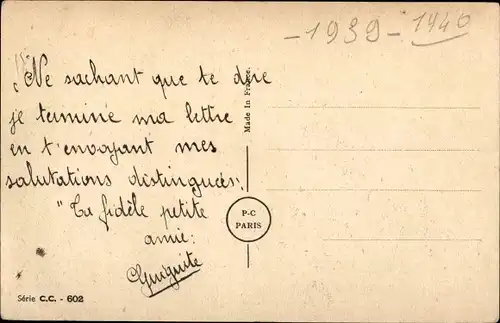 - 1939 - 1940
Ne sachant que te dire
je termine ma lettre
en t'envoyant mes
salutations distinguées.
"Ta fidèle petite
amie:
Guiguite
Made In France.
P-C
PARIS
Série C.C. - 602